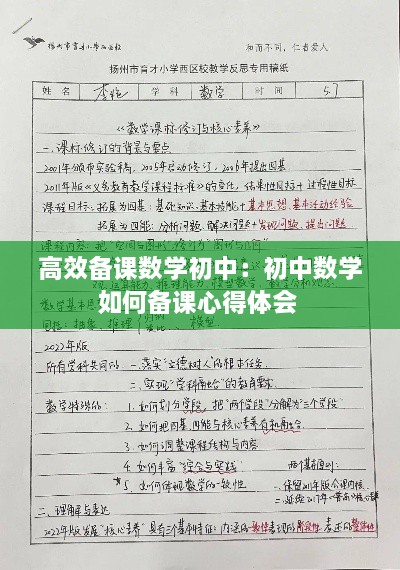 扬州市育才小学西区校
和而不同，仁者爱人
扬州市育才小学西区校教学反思专用稿纸
姓名 学科 数学 时间 5.7
《数学课标修订与核心素养》
一、课标修订的背景与要点
2001年颁布实验稿，2005年启动修订，2006年提出四基
2011年版《义务教育数学课程标准》的变化，结果性目标+过程性目标
课程目标：拓展为四基：基础知识、基本技能+基本思想、基本活动经验
拓展为四能：分析问题、解决问题+发现问题、提出问题
高效备课数学初中：初中数学
如何备课心得体会
2022年版
所有学科共同的 一、落实"立德树人"的根本任务
二、实现"学科育人"的教育要求
数学特殊的： 1、如何划分学段，把"两个学段"分解为"三个学段"
2、如何把四基、四能与核心素养有机融合
3、如何调整课程结构与内容
4、如何丰富"综合与实践" 两个基本原则：
5、如何体现数学的一致性 一、保留2011年版合理内核
二、理解与表达
2022年版发展"核心素养"具有三个基本特征：内涵的一致性 表现的阶段性 表述的整体性